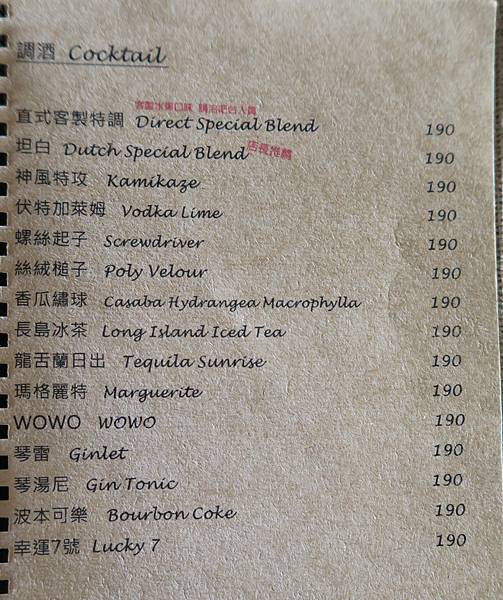 調酒 Cocktail
客製水果口味 請洽吧台人員
直式客製特調 Direct Special Blend 190
坦白 Dutch Special Blend 店長推薦 190
神風特攻 Kamikaze 190
伏特加萊姆 Vodka Lime 190
螺絲起子 Screwdriver 190
絲絨槌子 Poly Velour 190
香瓜繡球 Casaba Hydrangea Macrophylla 190
長島冰茶 Long Island Iced Tea 190
龍舌蘭日出 Tequila Sunrise 190
瑪格麗特 Marguerite 190
WOWO WOWO 190
琴雷 Ginlet 190
琴湯尼 Gin Tonic 190
波本可樂 Bourbon Coke 190
幸運7號 Lucky 7 190